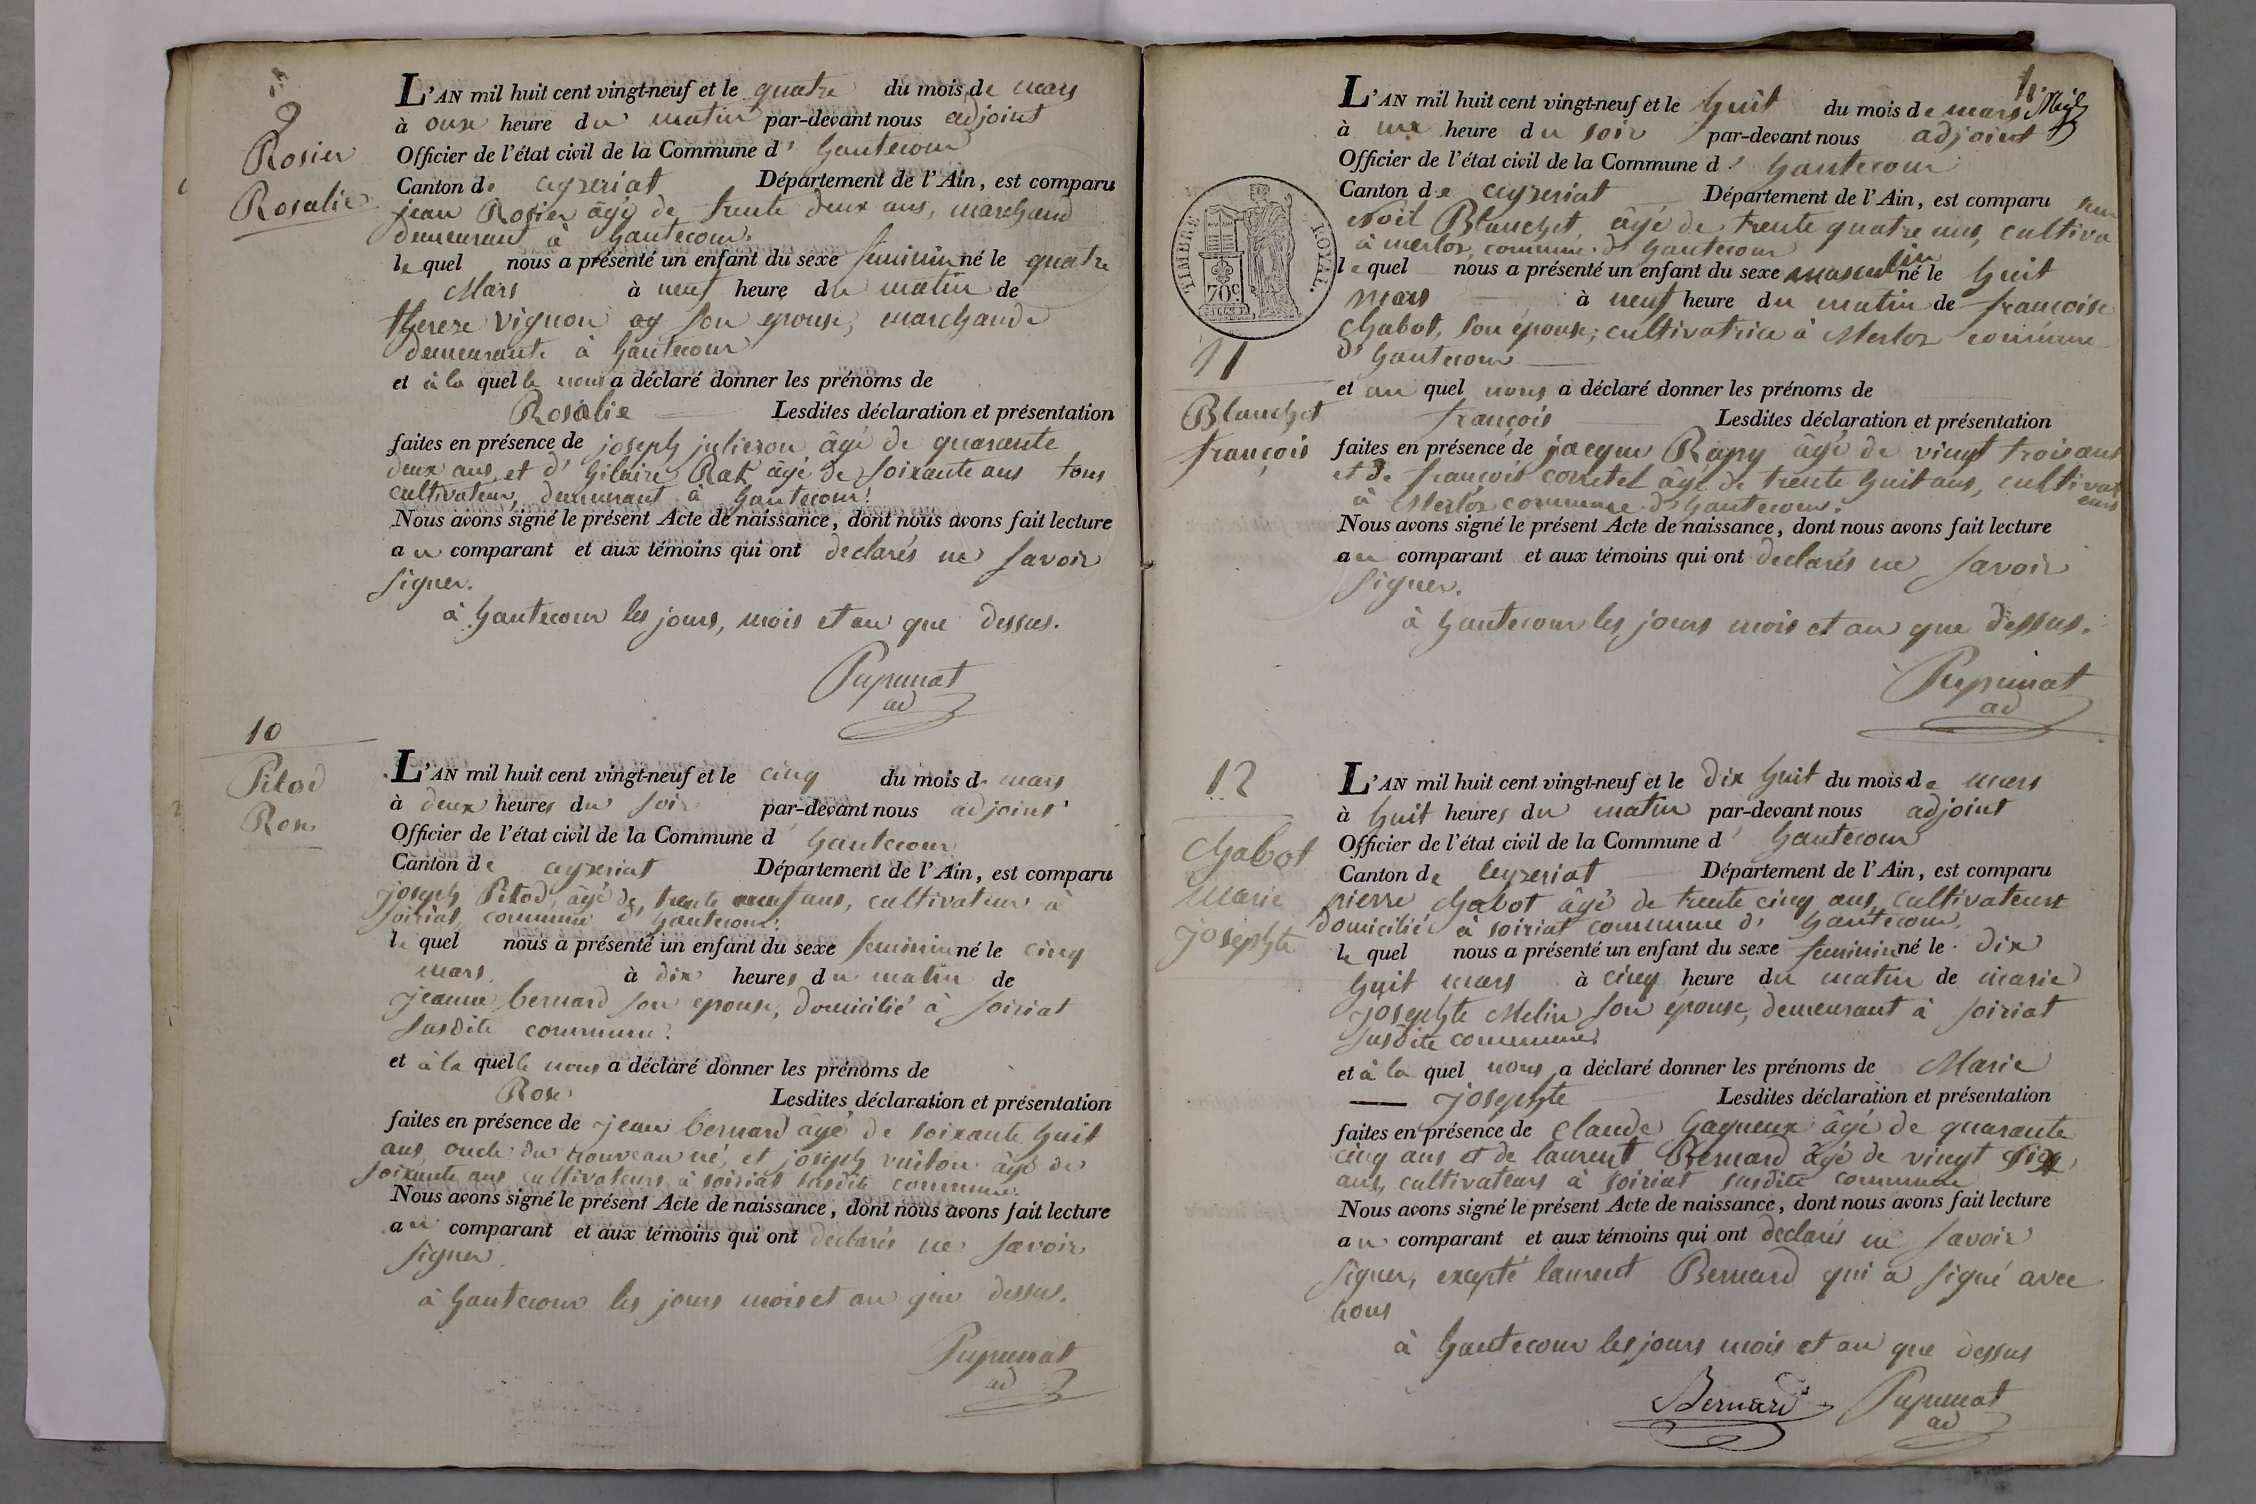 9
Rosier
Rosalie
L'AN mil huit cent vingt-neuf et le quatre du mois de mars
à onze heure du matin par-devant nous adjoint
Officier de l'état civil de la Commune d' hautecour
Canton de ceyzeriat Département de l'Ain, est comparu
jean Rosier âgé de trente deux ans, marchand
demeurant à hautecour.
le quel nous a présenté un enfant du sexe feminin né le quatre
Mars à neuf heure du matin de
therese vignon son epouse, marchande
demeurante à hautecour
et à la quelle nous a déclaré donner les prénoms de
Rosalie Lesdites déclaration et présentation
faites en présence de joseph julieron âgé de quarante
deux ans, et d' hilaire Rat âgé de soixante ans tous
cultivateurs, demeurant à hautecour.
Nous avons signé le présent Acte de naissance, dont nous avons fait lecture
au comparant et aux témoins qui ont declarés ne savoir
signer.
à hautecour les jours, mois et an que dessus.
Pupunat
ad
10
Pitod
Rose
L'AN mil huit cent vingt-neuf et le cinq du mois de mars
à deux heures du soir par-devant nous adjoint
Officier de l'état civil de la Commune d' hautecour
Canton de ceyzeriat Département de l'Ain, est comparu
joseph Pitod, âgé de trente neuf ans, cultivateur à
soiriat, commune d' hautecour.
le quel nous a présenté un enfant du sexe feminin né le cinq
mars à dix heures du matin de
jeanne bernard son epouse, domicilié à soiriat
susdite commune.
et à la quelle nous a déclaré donner les prénoms de
Rose Lesdites déclaration et présentation
faites en présence de jean bernard âgé de soixante huit
ans, oncle du nouveau né, et joseph vuiton âgé de
soixante ans cultivateurs à soiriat susdite commune.
Nous avons signé le présent Acte de naissance, dont nous avons fait lecture
au comparant et aux témoins qui ont declarés ne savoir
signer
à hautecour les jours mois et an que dessus.
Pupunat
ad
L'AN mil huit cent vingt-neuf et le huit du mois de mars
à une heure du soir par-devant nous adjoint
Officier de l'état civil de la Commune d' hautecour
Canton de ceyzeriat Département de l'Ain, est comparu
Noël Blanchet, âgé de trente quatre ans, cultiva
teur
à merloz, commune d' hautecour
le quel nous a présenté un enfant du sexe masculin né le huit
mars à neuf heure du matin de françoise
Chabot, son épouse, cultivatrice à Merloz commune
d' hautecour
et au quel nous a déclaré donner les prénoms de
françois Lesdites déclaration et présentation
faites en présence de jacque âgé de vingt trois ans
et de françois âgé de trente huit ans, cultivat
eurs
à Merloz commune d' hautecour.
Nous avons signé le présent Acte de naissance, dont nous avons fait lecture
au comparant et aux témoins qui ont declarés ne savoir
signer.
à hautecour les jours mois et an que dessus.
Pupunat
ad
TIMBRE ROYAL.
70c
11
Blanchet
françois
12
Chabot
Marie
josephte
L'AN mil huit cent vingt-neuf et le dix huit du mois de mars
à huit heures du matin par-devant nous adjoint
Officier de l'état civil de la Commune d' hautecour
Canton de Ceyzeriat Département de l'Ain, est comparu
pierre Chabot âgé de trente cinq ans, cultivateur
domicilié à soiriat commune d' hautecour.
le quel nous a présenté un enfant du sexe feminin né le dix
huit mars à cinq heure du matin de marie
josephte Melin son épouse, demeurant à soiriat
susdite commune
et à la quel nous a déclaré donner les prénoms de Marie
josephte Lesdites déclaration et présentation
faites en présence de Claude gagneux âgé de quarante
cinq ans et de laurent Bernard âgé de vingt six
ans, cultivateurs à soiriat susdite commune
Nous avons signé le présent Acte de naissance, dont nous avons fait lecture
au comparant et aux témoins qui ont declarés ne savoir
signer, excepté laurent Bernard qui a signé avec
nous
à hautecour les jours mois et an que dessus
Bernard Pupunat
ad